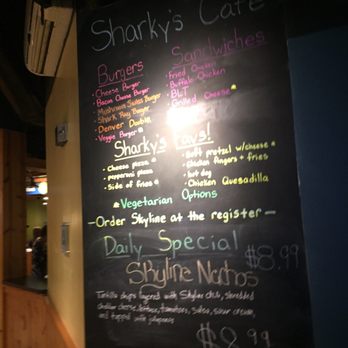 Sharky's Cafe
Burgers
• Cheese Burger
• Bacon Cheese Burger
• Mushroom Swiss Burger
• Shark Bay Burger
• Denver Double
• Veggie Burger *
Sandwiches
• Fried Chicken
• Buffalo Chicken
• BLT
• Grilled Cheese *
Sharky's Favs!
• Cheese pizza *
• pepperoni pizza
• Side of fries *
• Soft pretzel w/cheese *
• Chicken fingers + fries
• hot dog
• Chicken Quesadilla
* Vegetarian Options
— Order Skyline at the register —
Daily Special
$8.99
Skyline Nachos
Tortilla chips layered with Skyline chili, shredded
cheddar cheese, lettuce, tomatoes, salsa, sour cream,
and topped with jalapenos
$8.99